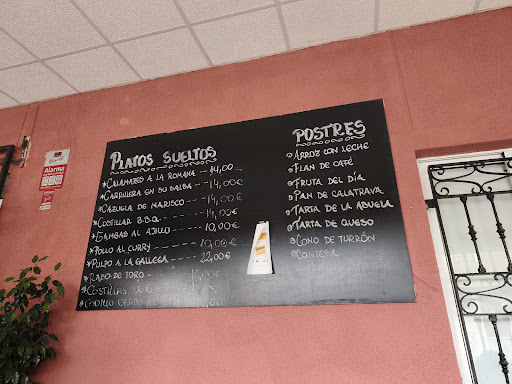 PLATOS SUELTOS
*CALAMARES A LA ROMANA --- 14,00
*CARRILLERA EN SU SALSA --- 14,00€
*CAZUELA DE MARISCO ---- 14,00€
*COSTILLAR B.B.Q. ---- 14,00€
*GAMBAS AL AJILLO ---- 10,00€
*POLLO AL CURRY ---- 10,00€
*PULPO A LA GALLEGA --- 22,00€
*RABO DE TORO
*COSTILLAS DE
POSTRES
ARROZ CON LECHE
FLAN DE CAFÉ
FRUTA DEL DÍA
PAN DE CALATRAVA
TARTA DE LA ABUELA
TARTA DE QUESO
CONO DE TURRÓN
CONTESA
Alarma